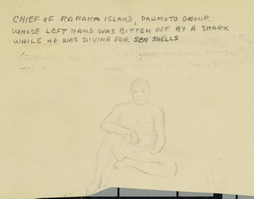 CHIEF OF RARAKA ISLAND, DAUMOTO GROUP,
WHOSE LEFT HAND WAS BITTEN OFF BY A SHARK
WHILE HE WAS DIVING FOR SEA SHELLS